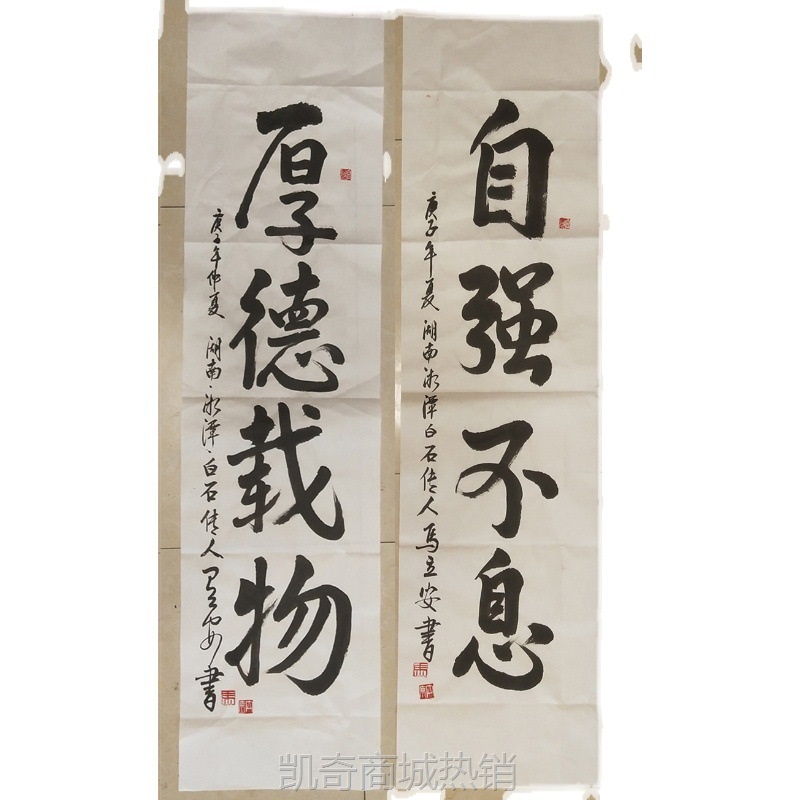 自强不息
庚子年夏 湖南湘潭白石传人马立安书
厚德载物
庚子年仲夏 湖南·湘潭·白石传人马立安书
凯奇商城热销